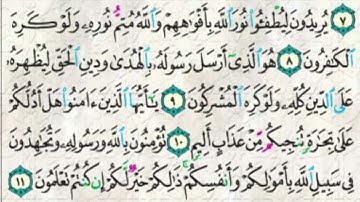 ٧ يُرِيدُونَ لِيُطْفِـُٔوا۟ نُورَ ٱللَّهِ بِأَفْوَٰهِهِمْ وَٱللَّهُ مُتِمُّ نُورِهِۦ وَلَوْ كَرِهَ
ٱلْكَٰفِرُونَ ٨ هُوَ ٱلَّذِىٓ أَرْسَلَ رَسُولَهُۥ بِٱلْهُدَىٰ وَدِينِ ٱلْحَقِّ لِيُظْهِرَهُۥ
عَلَى ٱلدِّينِ كُلِّهِۦ وَلَوْ كَرِهَ ٱلْمُشْرِكُونَ ٩ يَٰٓأَيُّهَا ٱلَّذِينَ ءَامَنُوا۟ هَلْ أَدُلُّكُمْ
عَلَىٰ تِجَٰرَةٍ تُنجِيكُم مِّنْ عَذَابٍ أَلِيمٍ ١٠ تُؤْمِنُونَ بِٱللَّهِ وَرَسُولِهِۦ وَتُجَٰهِدُونَ
فِى سَبِيلِ ٱللَّهِ بِأَمْوَٰلِكُمْ وَأَنفُسِكُمْ ذَٰلِكُمْ خَيْرٌ لَّكُمْ إِن كُنتُمْ تَعْلَمُونَ ١١